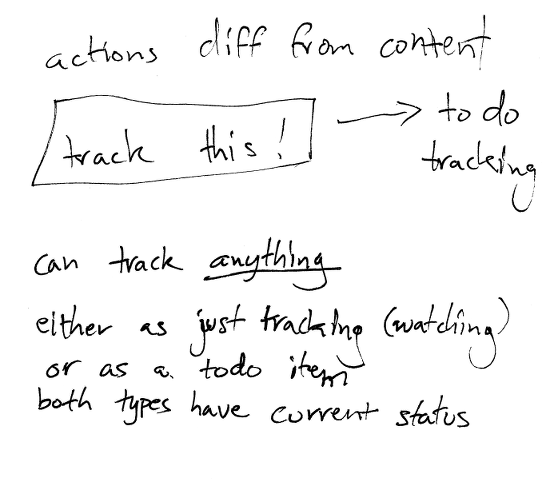 actions diff from content
track this! → to do
tracking
can track anything
either as just tracking (watching)
or as a todo item
both types have current status